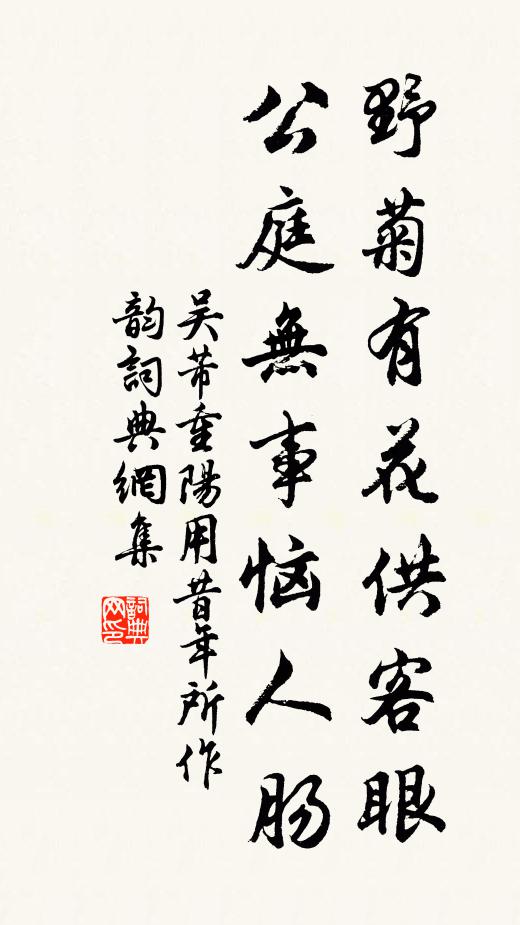 野菊有花供客眼
公庭無事恼人肠
吴芾重陽用昔年所作
韵詞典網集
詞典网印